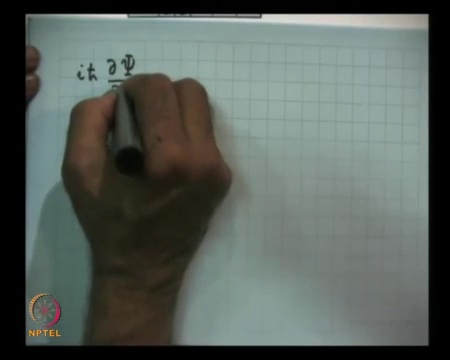 iħ ∂Ψ
NPTEL